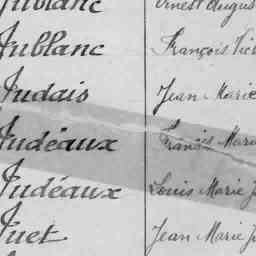 Jublanc Ernest Augus
Jublanc François Vic
Judais Jean Marie
Judéaux Francis Mari
Judéaux Louis Marie J
Juet Jean Marie J